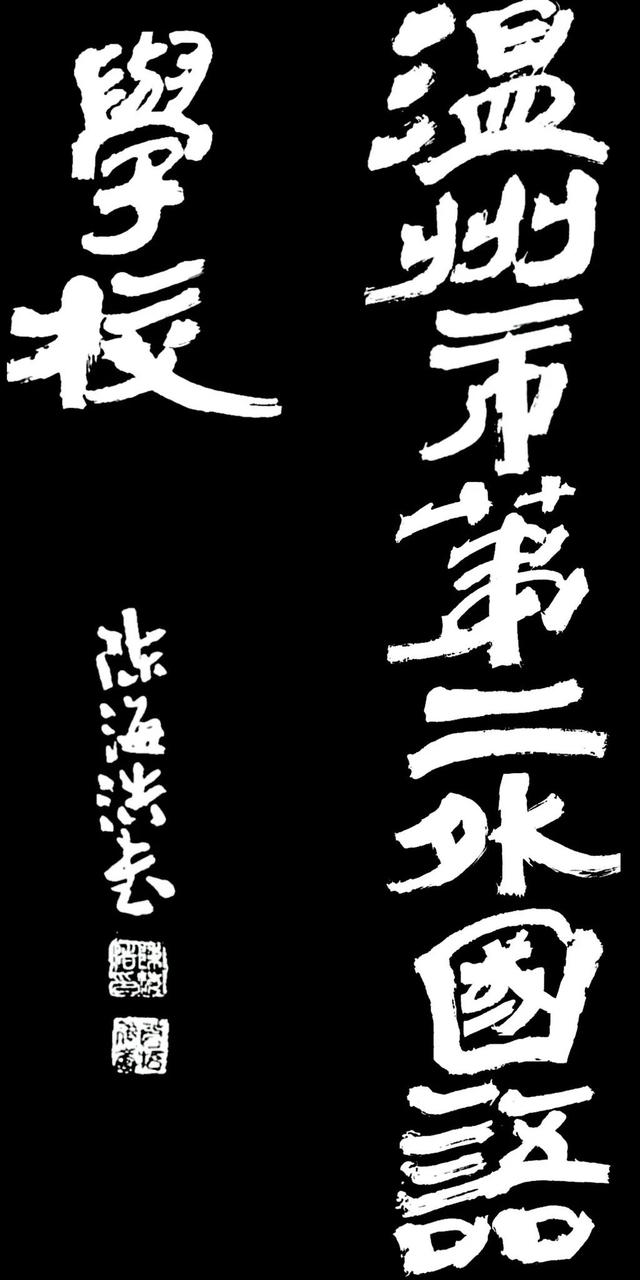 温州市第二外國語
學校
陈海浩书